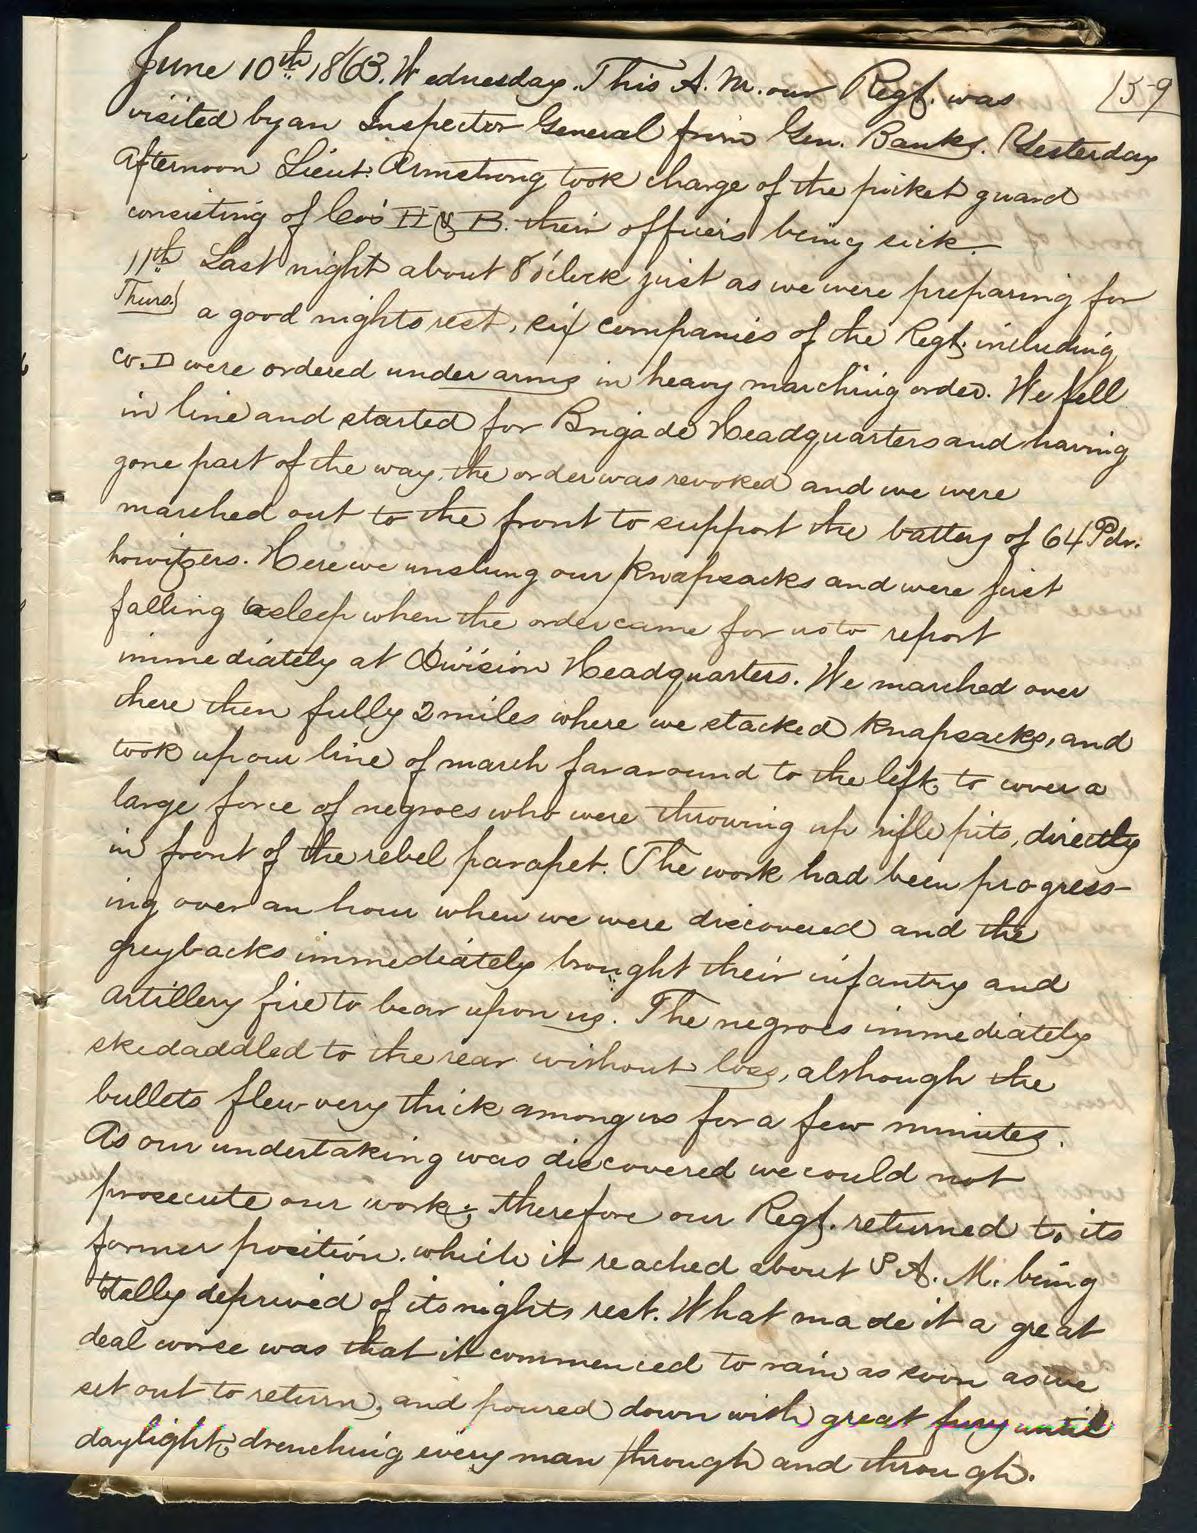 159
June 10th 1863. Wednesday. This A.M. our Regt. was
visited by an Inspector General from Gen. Banks. Yesterday
afternoon Lieut. Armstrong took charge of the picket guard
consisting of Co's H & B. their officers being sick.
11th Last night about 8 o'clock just as we were preparing for
Thurs. a good nights rest, six companies of the Regt. including
Co. D were ordered under arms in heavy marching order. We fell
in line and started for Brigade Headquarters and having
gone part of the way, the order was revoked and we were
marched out to the front to support the battery of 64 Pdr.
howitzers. Here we unslung our knapsacks and were just
falling asleep when the order came for us to report
immediately at Division Headquarters. We marched over
there then fully 2 miles where we stacked knapsacks, and
took up our line of march far around to the left, to cover a
large force of negroes who were throwing up rifle pits, directly
in front of the rebel parapet. The work had been progress-
ing over an hour when we were discovered and the
greybacks immediately brought their infantry and
artillery fire to bear upon us. The negroes immediately
skedaddled to the rear without loss, although the
bullets flew very thick among us for a few minutes.
As our undertaking was discovered we could not
prosecute our work; therefore our Regt. returned to its
former position. which it reached about A. M. being
totally deprived of its nights rest. What made it a great
deal worse was that it commenced to rain as soon as we
set out to return, and poured down with great fury until
daylight, drenching every man through and through.